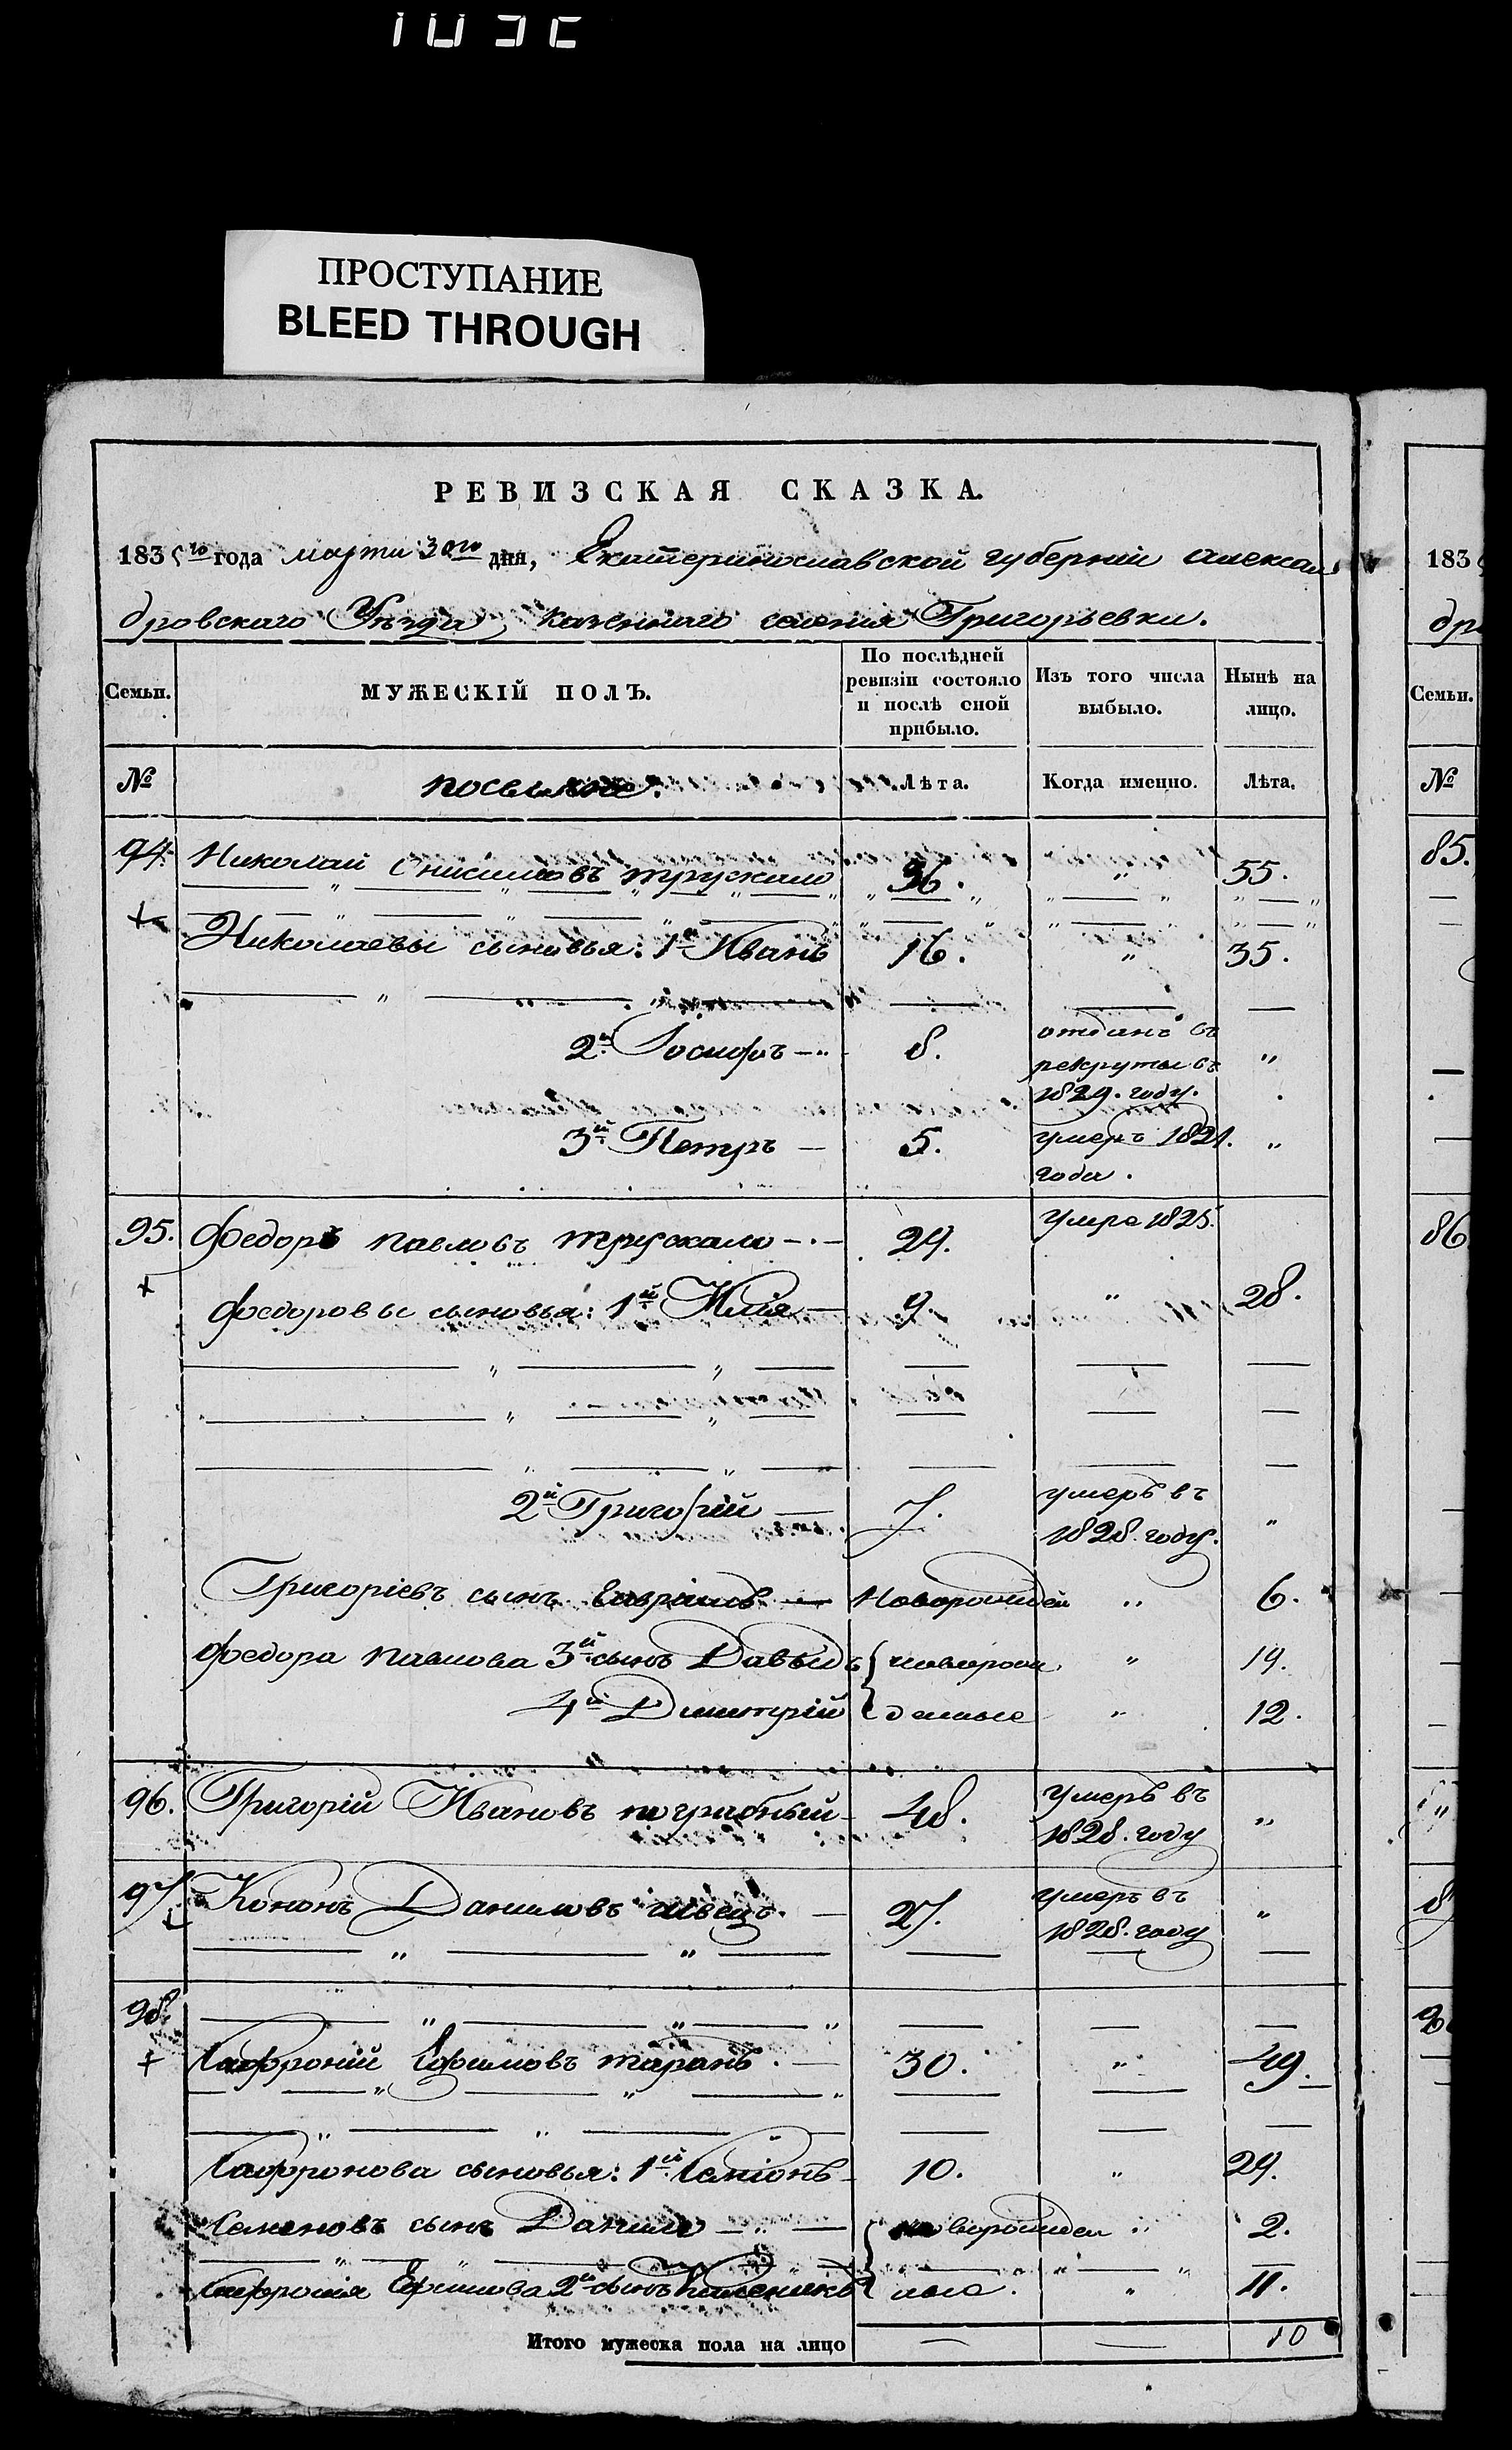 ПРОСТУПАНИЕ
BLEED THROUGH
РЕВИЗСКАЯ СКАЗКА.
1835го года марта 30го дня, Екатеринославской губерніи Алексан
дровскаго Уѣзда, казеннаго селенія Григорьевки.
Семьи. МУЖЕСКІЙ ПОЛЪ. По послѣдней ревизіи состояло и послѣ оной прибыло. Изъ того числа выбыло. Нынѣ на лицо.
№ Лѣта. Когда именно. Лѣта.
94. Николай Онисимовъ Трускало 36. " 55.
Николаевы сыновья: 1й Иванъ 16. " 35.
2й Іосифъ 8. отданъ въ рекруты въ 1829. году. "
3й Петръ 5. умеръ 1821. года. "
95. Федоръ Павловъ Трускало 29. умре 1825.
Федоровы сыновья: 1й Илія 9. " 28.
2й Григорій 7. умеръ въ 1828. году. "
Григоріевъ сынъ Гавріилъ новорожден " 6.
Федора Павлова 3й сынъ Давыдъ новорож " 19.
4й Димитрій денные " 12.
96. Григорій Ивановъ Погрибный 48. умеръ въ 1828. году "
97. Кононъ Даниловъ Швецъ. 27. умеръ въ 1828. году "
98.
Сафроній Ефимовъ Таранъ. 30. " 49.
Сафронова сыновья: 1й Семіонъ 10. " 29.
Семеновъ сынъ Данило новорожден " 2.
Сафронія Ефимова 2й сынъ ные. " 11.
Итого мужеска пола на лицо 10
183
др
Семьи.
№
85.
86